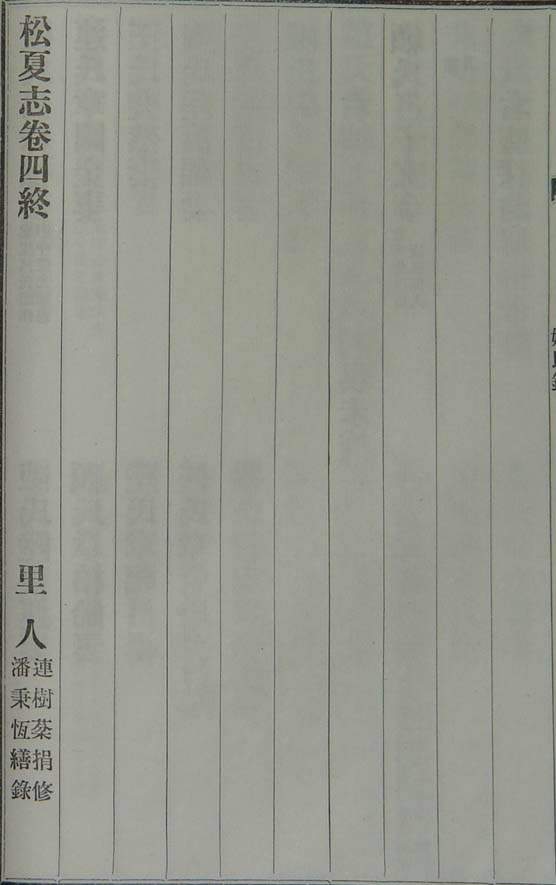 松夏志卷四終
里人
連樹棻捐修
潘秉恆繕錄